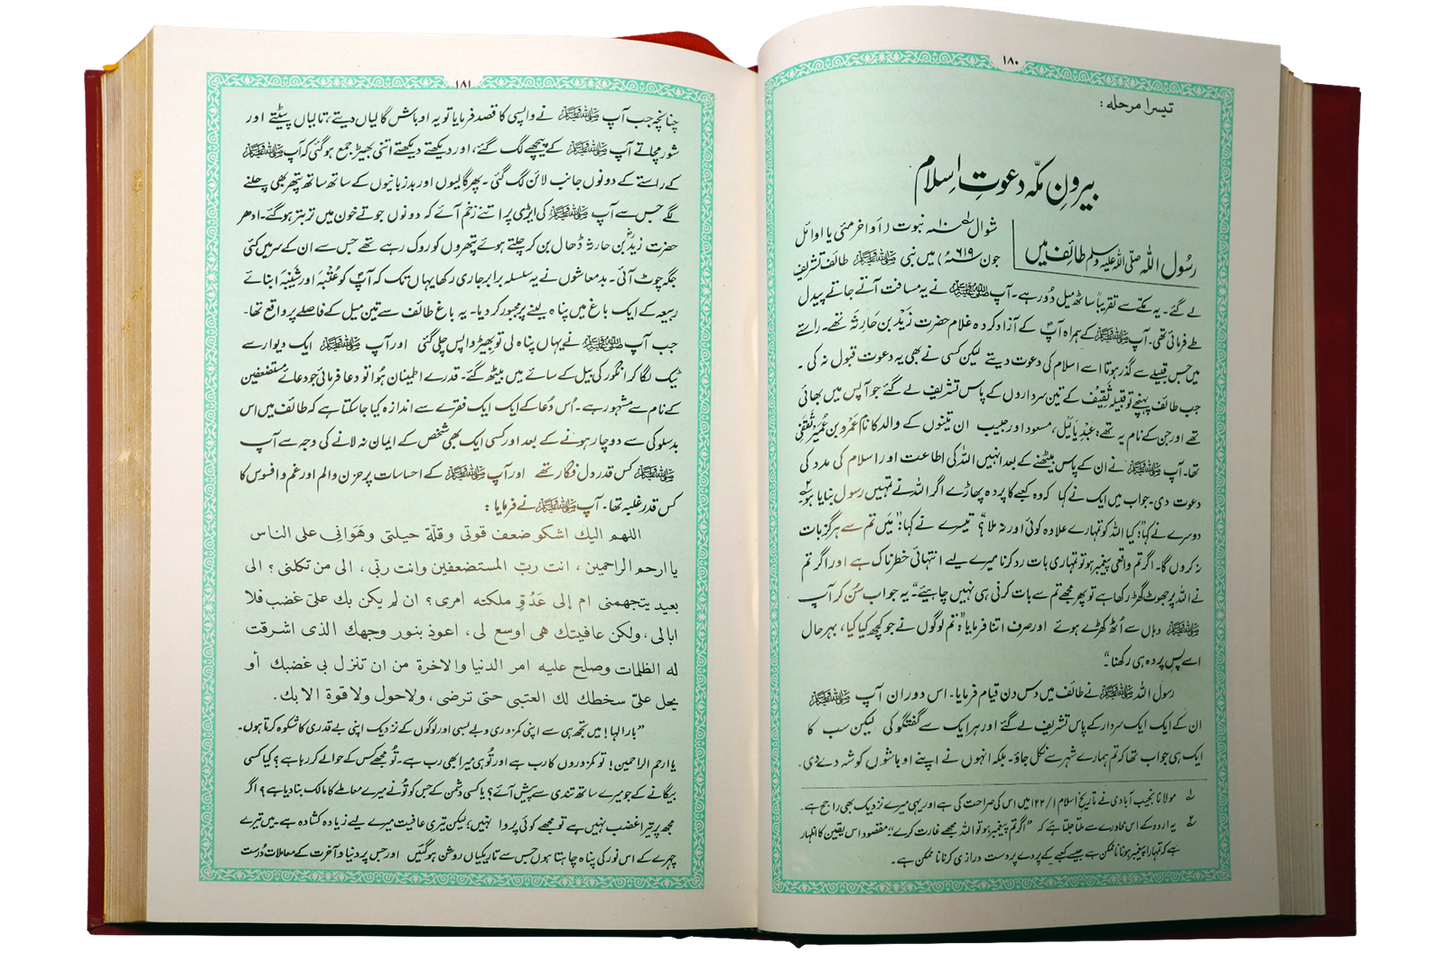 ۱۸۰
تیسرا مرحلہ:
بیرونِ مکّہ دعوتِ اسلام
رسُول اللہ صلی اللہ علیہ وسلم طائف میں
شوال ۱۰ نبوت (اواخر مئی یا اوائل
جون ۶۱۹ء) میں نبی ﷺ طائف تشریف
لے گئے۔ یہ مکّے سے تقریباً ساٹھ میل دُور ہے۔ آپ ﷺ نے یہ مسافت آتے جاتے پیدل
طے فرمائی تھی۔ آپ ﷺ کے ہمراہ آپؐ کے آزاد کردہ غلام حضرت زَیدؓ بن حَارِثہ تھے۔ راستے
میں جس قبیلے سے گذر ہوتا اسے اسلام کی دعوت دیتے لیکن کسی نے بھی یہ دعوت قبول نہ کی۔
جب طائف پہنچے تو قبیلہ ثَقِیف کے تین سرداروں کے پاس تشریف لے گئے جو آپس میں بھائی
تھے اور جن کے نام یہ تھے؛ عَبدِ یَالِیْل، مسعود اور حبیب ان تینوں کے والد کا نام عَمْرو بن عُمَیر ثَقَفی
تھا۔ آپ ﷺ نے ان کے پاس بیٹھنے کے بعد انہیں اللہ کی اطاعت اور اسلام کی مدد کی
دعوت دی۔ جواب میں ایک نے کہا کہ وہ کعبے کا پردہ پھاڑے اگر اللہ نے تمہیں رسول بنایا ہو۲؎
دوسرے نے کہا:"کیا اللہ کو تمہارے علاوہ کوئی اور نہ ملا؟" تیسرے نے کہا:"میں تم سے ہرگز بات
نہ کروں گا۔ اگر تم واقعی پیغمبر ہو تو تمہاری بات رد کرنا میرے لیے انتہائی خطرناک ہے اور اگر تم
نے اللہ پر جھوٹ گھڑ رکھا ہے تو پھر مجھے تم سے بات کرنی ہی نہیں چاہیئے"۔ یہ جواب سُن کر آپ
ﷺ وہاں سے اُٹھ کھڑے ہوئے اور صرف اتنا فرمایا:"تم لوگوں نے جو کچھ کیا کیا، بہرحال
اسے پسِ پردہ ہی رکھنا"۔
رسول اللہ ﷺ نے طائف میں دس دن قیام فرمایا۔ اس دوران آپ ﷺ
ان کے ایک ایک سردار کے پاس تشریف لے گئے اور ہر ایک سے گفتگو کی لیکن سب کا
ایک ہی جواب تھا کہ تم ہمارے شہر سے نکل جاؤ۔ بلکہ انہوں نے اپنے اوباشوں کو شہ دے دی.
۱؎ مولانا نجیب آبادی نے تاریخ اسلام ۱/۱۲۲ میں اس کی صراحت کی ہے اور یہی میرے نزدیک بھی راجح ہے۔
۲؎ یہ اردو کے اس محاورے سے ملتا جلتا ہے کہ "اگر تم پیغمبر ہو تو اللہ مجھے غارت کرے" مقصود اس یقین کا اظہار
ہے کہ تمہارا پیغمبر ہونا ناممکن ہے جیسے کعبے کے پردے پر دست درازی کرنا ناممکن ہے۔
۱۸۱
چنانچہ جب آپ ﷺ نے واپسی کا قصد فرمایا تو یہ اوباش گالیاں دیتے، تالیاں پیٹتے اور
شور مچاتے آپ ﷺ کے پیچھے لگ گئے، اور دیکھتے دیکھتے اتنی بھیڑ جمع ہو گئی کہ آپ ﷺ
کے راستے کے دونوں جانب لائن لگ گئی۔ پھر گالیوں اور بدزبانیوں کے ساتھ ساتھ پتھر بھی چلنے
لگے جس سے آپ ﷺ کی ایڑی پر اتنے زخم آئے کہ دونوں جوتے خون میں تر بتر ہو گئے۔ ادھر
حضرت زیدؓ بن حارثہ ڈھال بن کر چلتے ہوئے پتھروں کو روک رہے تھے جس سے ان کے سر میں کئی
جگہ چوٹ آئی۔ بدمعاشوں نے یہ سلسلہ برابر جاری رکھا یہاں تک کہ آپؐ کو عُتْبَہ اور شَیْبَہ ابنائے
ربیعہ کے ایک باغ میں پناہ لینے پر مجبور کر دیا۔ یہ باغ طائف سے تین میل کے فاصلے پر واقع تھا۔
جب آپ ﷺ نے یہاں پناہ لی تو بھیڑ واپس چلی گئی اور آپ ﷺ ایک دیوار سے
ٹیک لگا کر انگور کی بیل کے سائے میں بیٹھ گئے۔ قدرے اطمینان ہُوا تو دعا فرمائی جو دعائے مستضعفین
کے نام سے مشہور ہے۔ اُس دُعا کے ایک ایک فقرے سے اندازہ کیا جا سکتا ہے کہ طائف میں اس
بدسلوکی سے دوچار ہونے کے بعد اور کسی ایک بھی شخص کے ایمان نہ لانے کی وجہ سے آپ
ﷺ کس قدر دل فگار تھے اور آپ ﷺ کے احساسات پر حزن والم اور غم وافسوس کا
کس قدر غلبہ تھا۔ آپ ﷺ نے فرمایا :
اللهم اليك اشكو ضعف قوتى وقلّة حيلتى وهَوَانى على الناس
يا ارحم الراحمين، انت ربّ المستضعفين وانت ربّى، الى من تكلنى؟ الى
بعيد يتجهمنى ام إلى عَدُوّ ملكته امرى؟ ان لم يكن بك علىّ غضب فلا
ابالى، ولكن عافيتك هى اوسع لى، اعوذ بنور وجهك الذى اشرقت
له الظلمات وصلح عليه امر الدنيا والاخرة من ان تنزل بى غضبك أو
يحل علىّ سخطك لك العتبى حتى ترضى، ولا حول ولا قوة الا بك.
"بارالہا! میں تجھ ہی سے اپنی کمزوری و بے بسی اور لوگوں کے نزدیک اپنی بے قدری کا شکوہ کرتا ہوں۔
یا ارحم الراحمین! تو کمزوروں کا رب ہے اور تُو ہی میرا بھی رب ہے۔ تُو مجھے کس کے حوالے کر رہا ہے؟ کیا کسی
بیگانے کے جو میرے ساتھ تندی سے پیش آئے؟ یا کسی دشمن کے جس کو تُو نے میرے معاملے کا مالک بنا دیا ہے؟ اگر
مجھ پر تیرا غضب نہیں ہے تو مجھے کوئی پروا نہیں؛ لیکن تیری عافیت میرے لیے زیادہ کشادہ ہے۔ میں تیرے
چہرے کے اس نور کی پناہ چاہتا ہوں جس سے تاریکیاں روشن ہو گئیں اور جس پر دنیا و آخرت کے معاملات دُرست